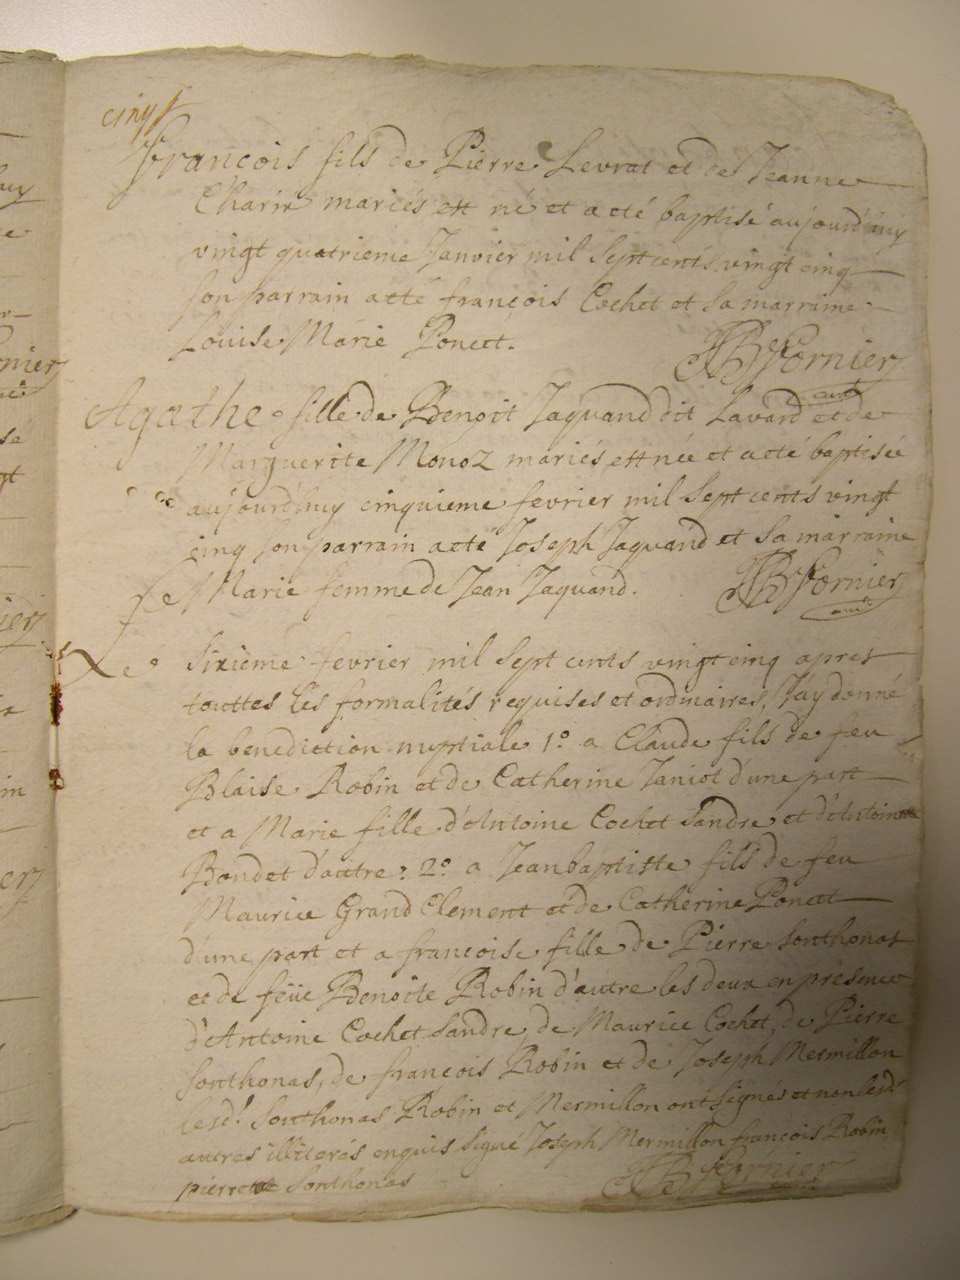 cinq
françois fils de Pierre Levrat et de Jeanne
Charix mariés est né et a eté baptisé aujourd'huy
vingt quatrieme Janvier mil Sept cents vingt cinq
son parrain a eté françois Cochet et Sa marraine
Louise Marie Poncet. JB Fornier
curé
Agathe fille de Benoit Jaquand dit Lavard et de
Marguerite Monoz mariés est née et a eté baptisée
aujourd'huy cinquieme fevrier mil Sept cents vingt
cinq son parrain a eté Joseph Jaquand et Sa marraine
Marie femme de Jean Jaquand. JB Fornier
curé
Le Sixieme fevrier mil Sept cents vingt cinq apres
touttes les formalités requises et ordinaires, J'ay donné
la benediction nuptiale 1º a Claude fils de feu
Blaise Robin et de Catherine Janiot d'une part
et a Marie fille d'Antoine Cochet Sandre et d'Antoinette
Bondet d'autre : 2º a Jean baptiste fils de feu
Maurice Grand Clement et de Catherine Poncet
d'une part et a francoise fille de Pierre Sonthonas
et de feüe Benoite Robin d'autre les deux en presence
d'Antoine Cochet Sandre, de Maurice Cochet, de Pierre
Sonthonas, de francois Robin et de Joseph Mermillon
lesd. Sonthonas Robin et Mermillon ont signés et non lesd.
autres illiterés enquis Signé Joseph Mermillon francois Robin
pierre Sonthonas JB Fornier